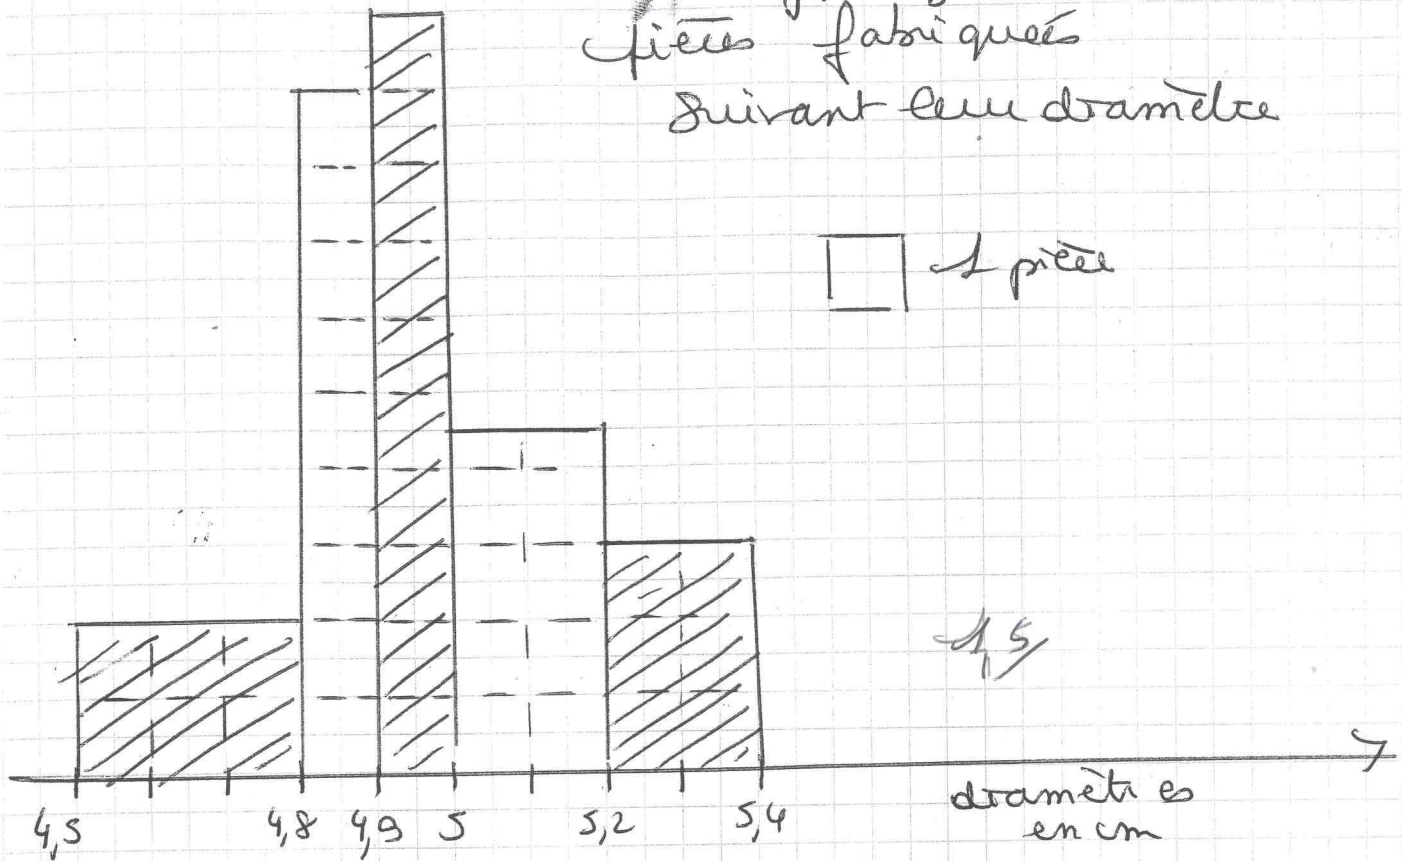 pièces fabriquées
suivant leur diamètre
1 pièce
1,5
4,5 4,8 4,9 5 5,2 5,4
diamètres
en cm